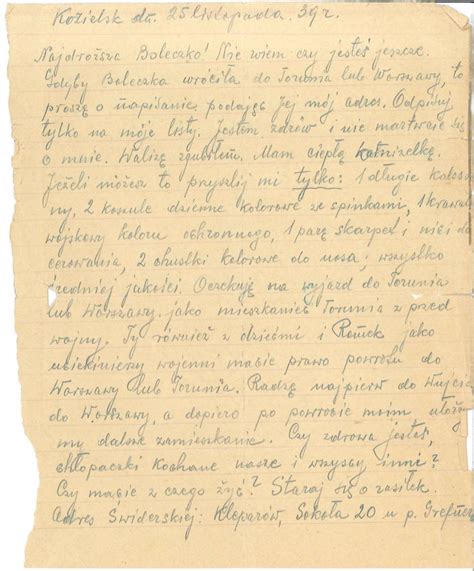 Kozielsk dn. 25 listopada. 39 r.
Najdroższa Boleczko! Nie wiem czy jesteś jeszcze.
Gdyby Boleczka wróciła do Torunia lub Warszawy, to
proszę o napisanie, podając Jej mój adres. Odpisuj
tylko na móje listy. Jestem zdrów i nie martwcie się
o mnie. Walizę zgubiłem. Mam ciepłą kamizelkę.
Jeżeli możesz to przyslij mi tylko: 1 długie kaleso
ny, 2 koszule dzienne kolorowe ze spinkami, 1 krawat
wojskowy koloru ochronnego, 1 parę skarpet i nici do
cerowania, 2 chustki kolorowe do nosa; wszystko
średniej jakości. Oczekuję na wyjazd do Torunia
lub Warszawy. jako mieszkaniec Torunia z przed
wojny. Ty również z dziećmi i Romek jako
uciekinierzy wojenni macie prawo powrotu do
Warszawy lub Torunia. Radzę najpierw do Wujcia
do Warszawy, a dopiero po powrocie moim ułoży
my dalsze zamieszkanie. Czy zdrowa jesteś,
chłopaczki kochane nasze i wszyscy inni?
Czy macie z czego żyć? Staraj się o zasiłek.
Adres Swiderskiej: Kleparów, Sokoła 20 u p.